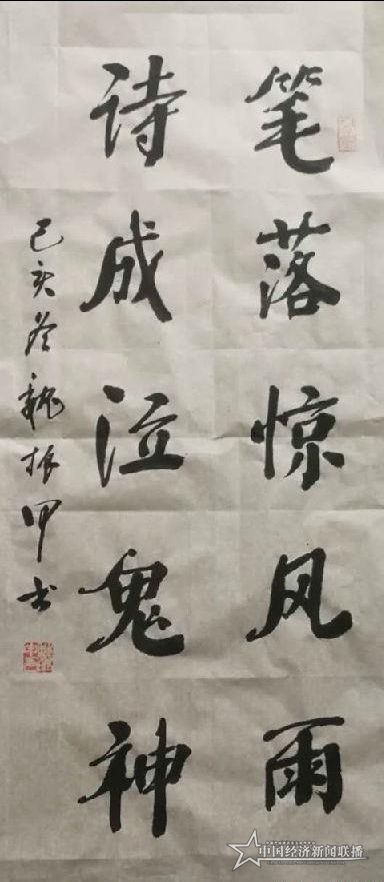 笔落惊风雨
诗成泣鬼神
己亥冬魏振甲书
中国经济新闻联播